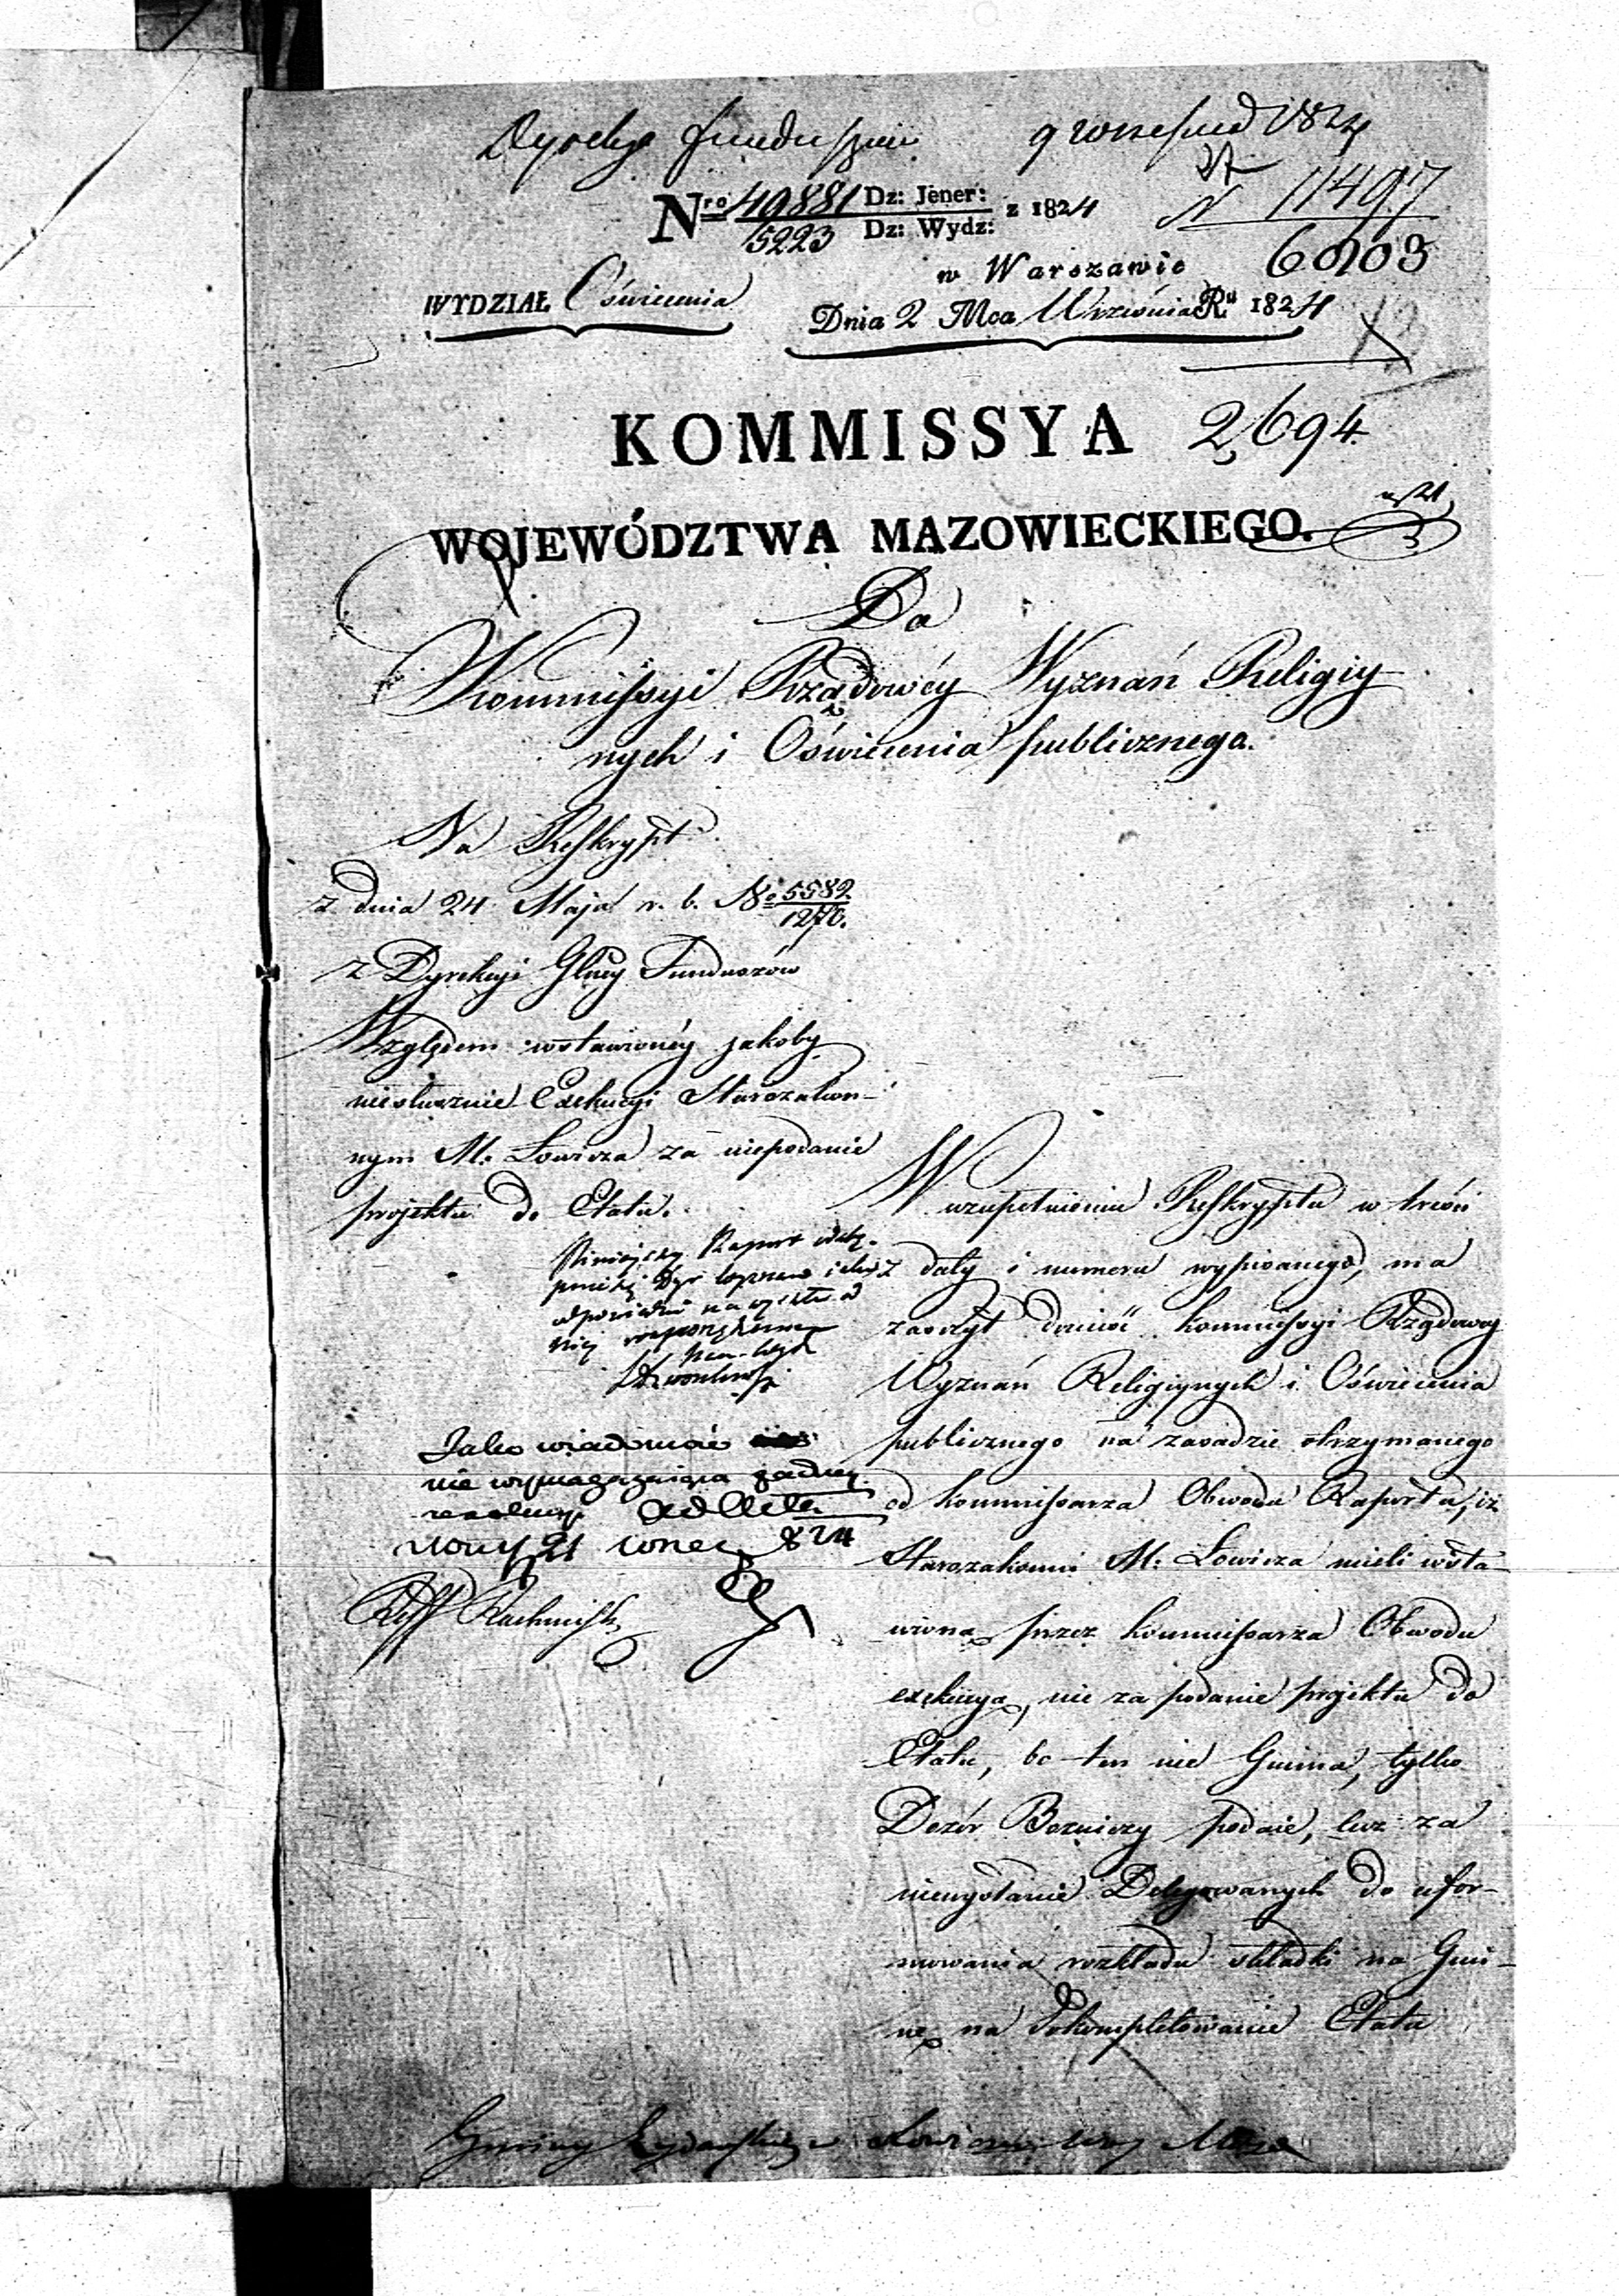 Dyrekcyi Funduszów 9 Wrześnid 1824
Nro 49881 Dz: Jener: z 1824
5223 Dz: Wydz:
N 11497
6003
w Warszawie
WYDZIAŁ Oświecenia
Dnia 2 Mca Września Ru 1824
KOMMISSYA
2694.
WOJEWÓDZTWA MAZOWIECKIEGO.
Do
Kommissyi Rządowéy Wyznań Religiy
nych i Oświecenia publicznego.
Na Reskrypt
z dnia 24 Maja r. b. No 5582
1270.
z Dyrekcyi Głney Funduszów
Względem wstawionéy jakoby
niesłusznie Exekucyi Starozakon-
nym M. Łowicza za niepodanie
projektu do Etatu.
Niniejszy Raport
Jako wiadomość
nie wymagaiąca żadney
rezolucyi ad Acta.
21 824
W uzupełnieniu Reskryptu w treści
z daty i numeru wypisanego, ma
zaszczyt donieść Kommissyi Rządowey
Wyznań Religiynych i Oświecenia
publicznego na zasadzie otrzymanego
od Kommissarza Obwodu Raportu, iż
Starozakonni M. Łowicza mieli wsta-
wioną przez Kommissarza Obwodu
exekucyą, nie za podanie projektu do
Etatu, bo ten nie Gmina, tylko
Dozór Bożniczy podaie, lecz za
niewysłanie Delegowanych do ufor-
mowania rozkładu składki na Gmi-
nę na dokompletowanie Etatu
Gminy Żydowskiey w Łowiczu